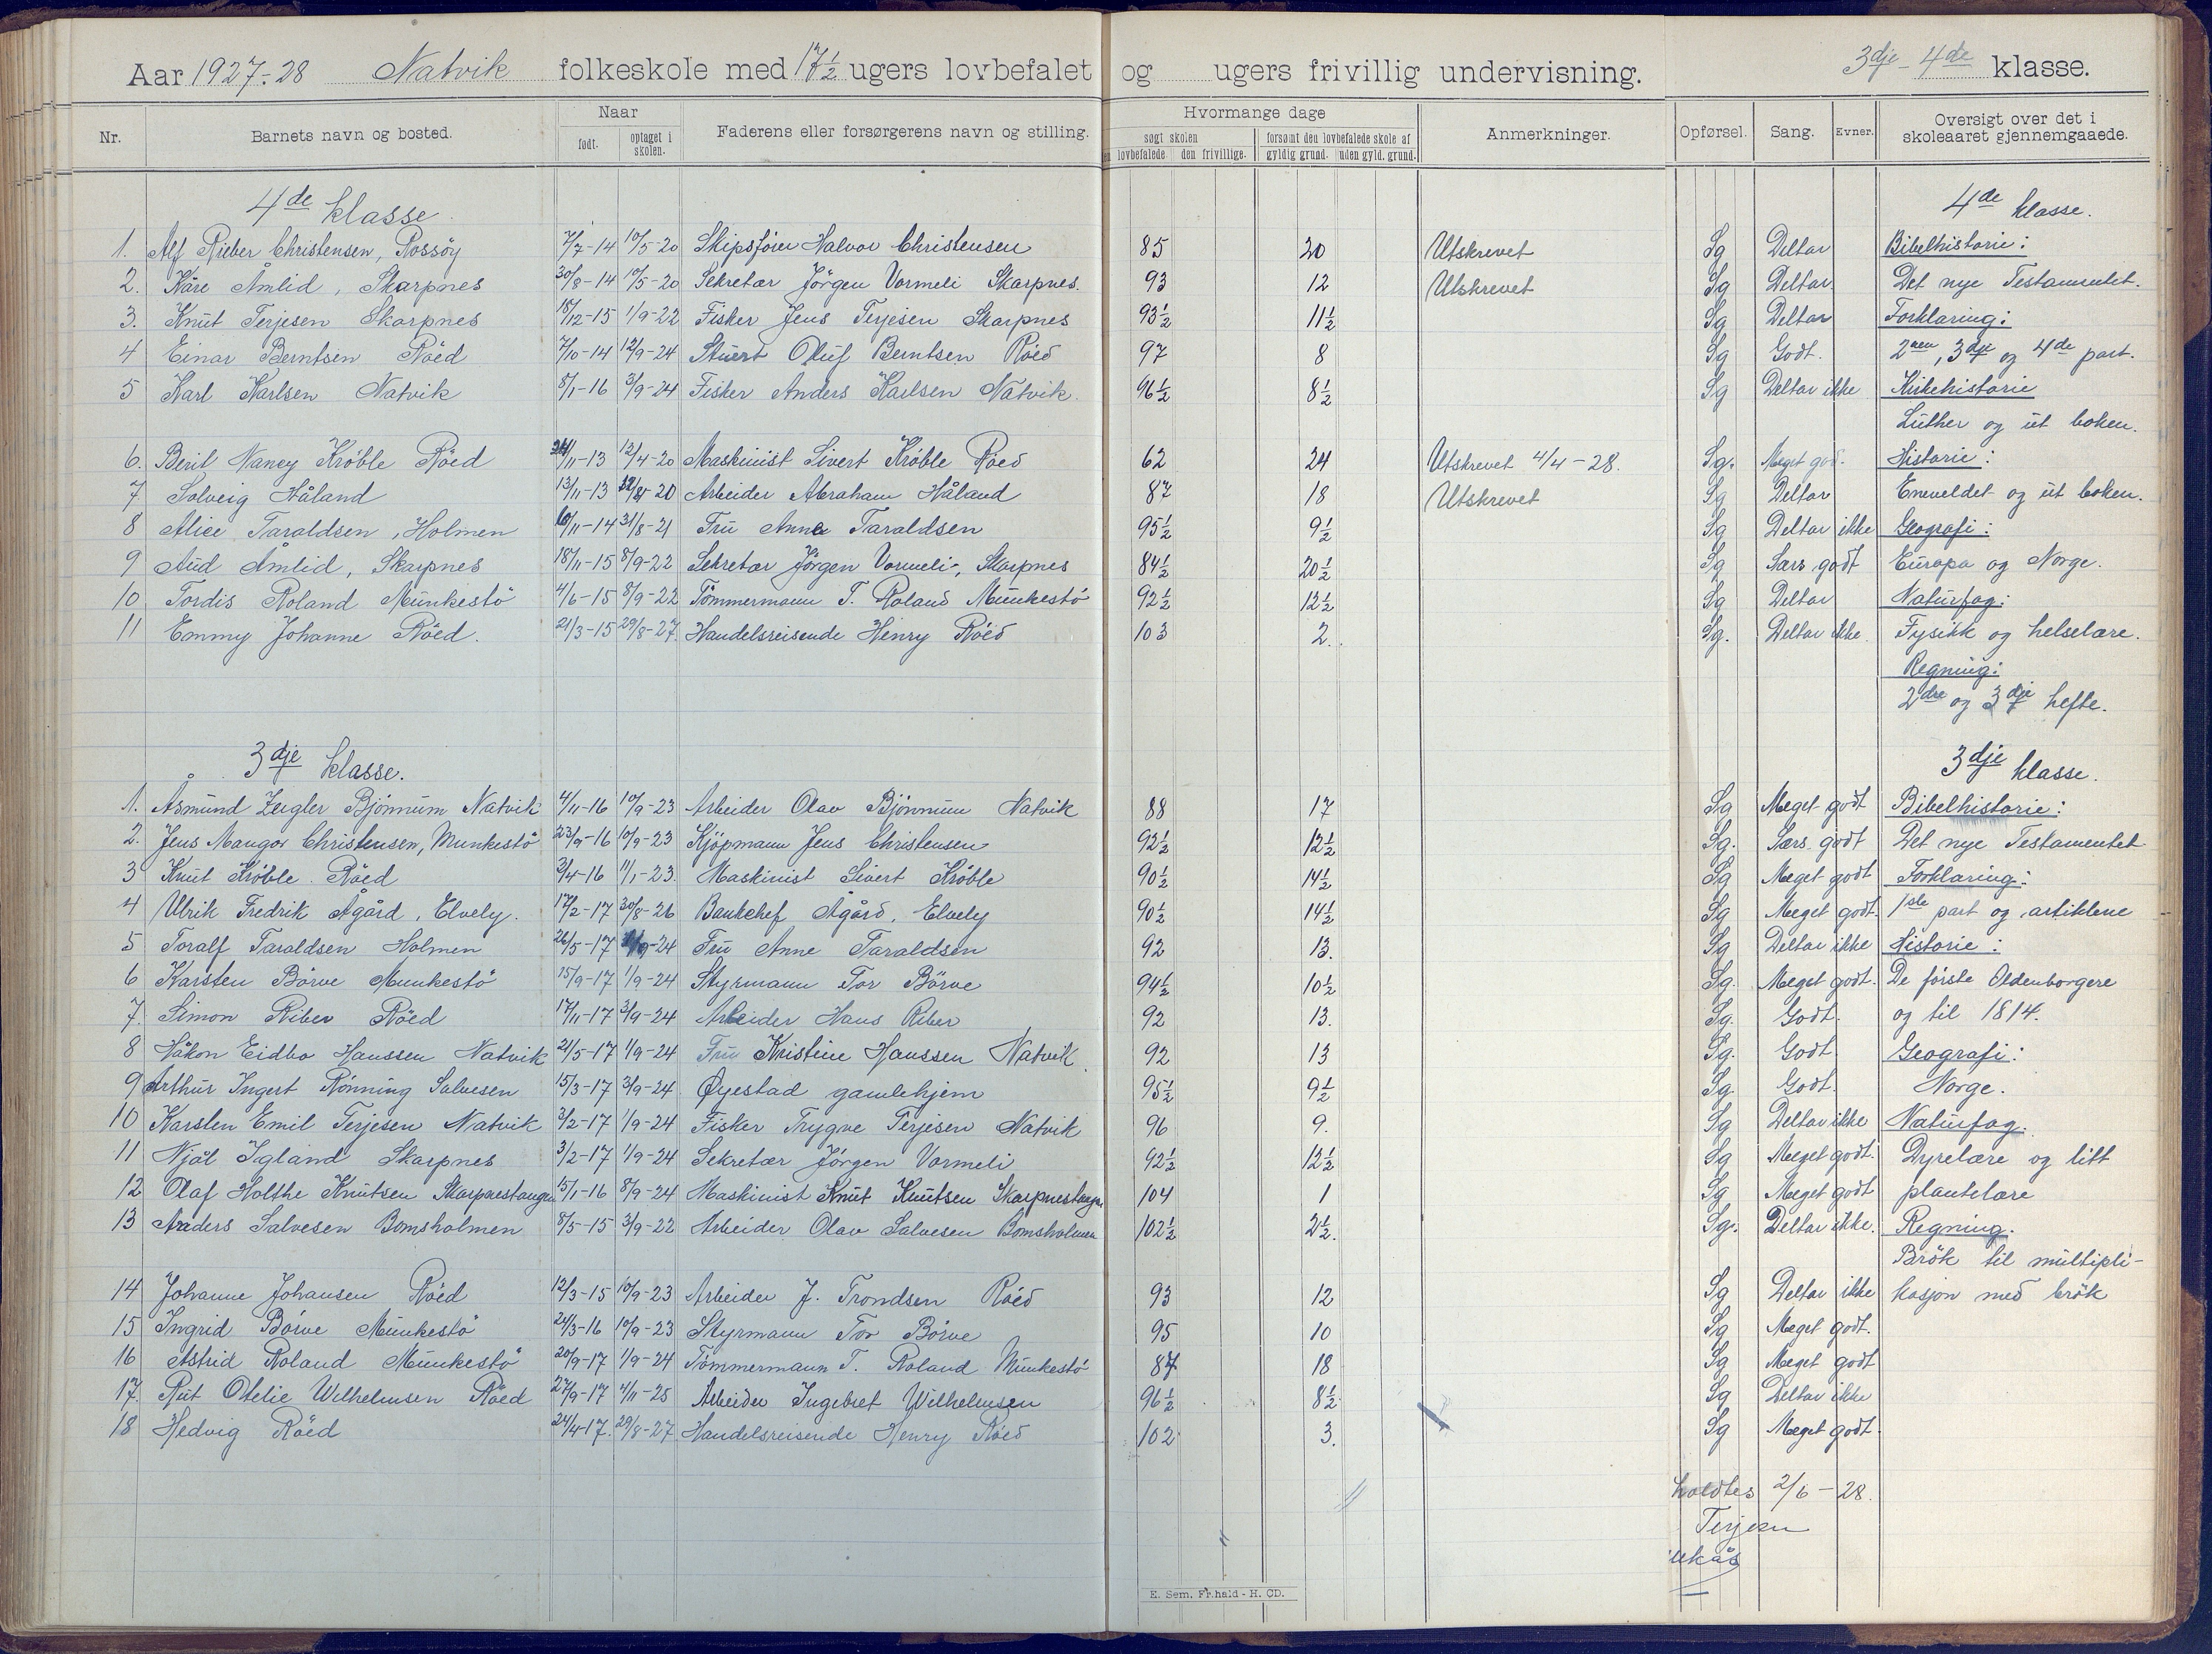 Aar 1927-28 Natvik folkeskole med 17½ ugers lovbefalet og ugers frivillig undervisning. 3dje - 4de klasse.
Nr. Barnets navn og bosted. Naar født. optaget i skolen. Faderens eller forsørgerens navn og stilling. Hvormange dage søgt skolen lovbefalede den frivillige. forsømt den lovbefalede skole af gyldig grund. uden gyld. grund. Anmerkninger. Opførsel. Sang. Evner. Oversigt over det i skoleaaret gjennemgaaede.
4de klasse. 4de klasse.
1. Alf Rieber Christensen, Rossöy 7/7-14 10/5-20 Skipsfører Halvor Christensen 85 20 Utskrevet Sg Deltar Bibelhistorie:
2. Kåre Åmlid, Skarpnes 30/8-14 10/5-20 Sekretær Jörgen Vormeli Skarpnes. 93 12 Utskrevet Sg Deltar. Det nye Testamentet.
3. Knut Terjesen Skarpnes 18/12-15 1/9-22 Fisker Jens Terjesen Skarpnes 93½ 11½ Sg Deltar Forklaring:
4 Einar Berntsen Röed 7/10-14 12/9-24 Stuert Oluf Berntsen Röed 97 8 Sg Godt. 2nen, 3dje og 4de part.
5 Karl Karlsen Natvik 8/1-16 3/9-24 Fisker Anders Karlsen Natvik. 96½ 8½ Sg Deltar ikke Kirkehistorie
Luther og ut boken.
6. Berit Nancy Kröble Röed 24/11-13 12/4-20 Maskinist Sivert Kröble Röed 62 24 Utskrevet 4/4-28. Sg. Meget god. Historie:
7 Solveig Håland 13/11-13 20 Arbeider Abraham Håland 87 18 Utskrevet Sg Deltar Eneveldet og ut boken.
8 Alice Taraldsen, Holmen 10/11-14 31/8-21 Fru Anna Taraldsen 95½ 9½ Sg Deltar ikke Geografi:
9 Aud Åmlid, Skarpnes 18/11-15 8/9-22 Sekretær Jörgen Vormeli, Skarpnes 84½ 20½ Sg Særs godt Europa og Norge.
10 Tordis Roland Munkestö 4/6-15 8/9-22 Tömmermann T. Roland Munkestö 92½ 12½ Sg Deltar Naturfag:
11 Emmy Johanne Röed. 21/3-15 29/8-27. Handelsreisende Henry Röed 103 2. Sg. Deltar ikke. Fysikk og helselære.
Regning:
2dre og 3dje hefte.
3dje klasse. 3dje klasse.
1. Åsmund Zeigler Bjönnum Natvik 4/11-16 10/9-23 Arbeider Olav Bjönnum Natvik 88 17 Sg Meget godt Bibelhistorie:
2. Jens Mangor Christensen, Munkestö 23/9-16 10/9-23 Kjöpmann Jens Christensen 92½ 12½ Sg. Særs godt Det nye Testamentet
3 Knut Kröble. Röed 3/4-16 11/1-23. Maskinist Sivert Kröble 90½ 14½ Sg Meget godt Forklaring:
4 Ulrik Fredrik Ågård, Elvely. 17/2-17 30/8-26 Bankchef Ågård, Elvely 90½ 14½ Sg Meget godt. 1ste part og artiklene
5 Toralf Taraldsen Holmen 26/5-17 /9-24 Fru Anne Taraldsen 92 13. Sg Deltar ikke Historie:
6 Karsten Börve Munkestö 15/9-17 1/9-24 Styrmann Tor Börve 94½ 10½ Sg. Meget godt. De første Oldenborgere
7. Simon Riber Röed 17/11-17 3/9-24 Arbeider Hans Riber 92 13. Sg. Godt. og til 1814.
8 Håkon Eidbo Hanssen Natvik 21/5-17 1/9-24 Fru Kristine Hanssen Natvik. 92 13 Sg. Godt Geografi:
9 Arthur Ingert Rönning Salvesen 15/3-17 3/9-24 Øyestad gamlehjem 95½ 9½ Sg. Godt. Norge.
10 Karsten Emil Terjesen Natvik 3/2-17 1/9-24 Fisker Trygve Terjesen Natvik 96 9. Sg Deltar ikke Naturfag:
11 Njål Igland Skarpnes 3/2-17 1/9-24 Sekretær Jörgen Vormeli 92½ 12½ Sg Meget godt. Dyrelære og litt
12 Olaf Holthe Knutsen Skarpnestangen 15/1-16 8/9-24 Maskinist Knut Knutsen Skarpnestangen 104 1 Sg Meget godt plantelære
13 Anders Salvesen Bomsholmen 8/5-15 3/9-22 Arbeider Olav Salvesen Bomsholmen 102½ 2½. Sg. Deltar ikke. Regning.
Brök til multipli-
14 Johanne Johansen Röed 12/3-15 10/9-23 Arbeider J. Trondsen Röed 93 12 Sg Deltar ikke kasjon med brök
15 Ingrid Börve Munkestö 24/3-16 10/9-23 Styrmann Tor Börve 95 10 Sg Meget godt.
16 Astrid Roland Munkestö 20/9-17 1/9-24 Tömmermann T. Roland Munkestö 87 18 Sg Meget godt
17. Rut Otelie Wilhelmsen Röed 27/9-17 4/11-25 Arbeider Ingebret Wilhelmsen 96½ 8½ Sg Deltar ikke
18 Hedvig Röed 24/4-17. 29/8-27 Handelsreisende Henry Röed 102 3. Sg Meget godt.
holdtes 2/6-28.
Terjesen
E. Sem. Fr.hald - H. CD.